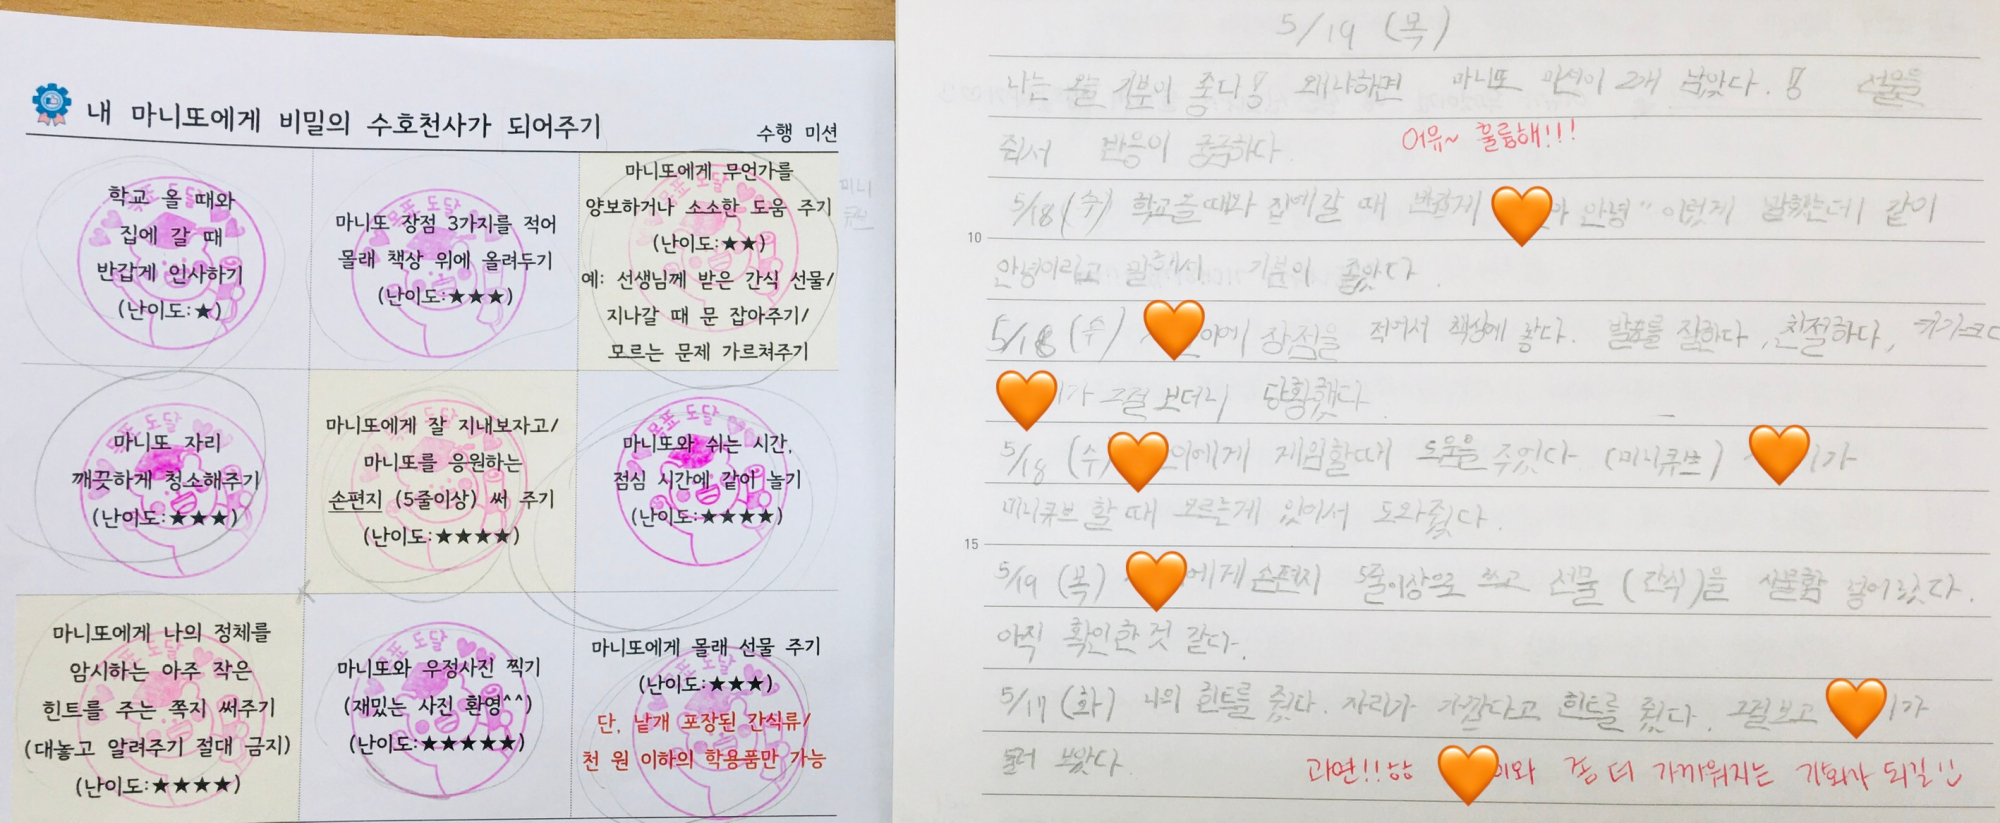 내 마니또에게 비밀의 수호천사가 되어주기
수행 미션
학교 올 때와
집에 갈 때
반갑게 인사하기
(난이도:★)
마니또 장점 3가지를 적어
몰래 책상 위에 올려두기
(난이도:★★★)
마니또에게 무언가를
양보하거나 소소한 도움 주기
(난이도:★★)
예: 선생님께 받은 간식 선물/
지나갈 때 문 잡아주기/
모르는 문제 가르쳐주기
마니또 자리
깨끗하게 청소해주기
(난이도:★★★)
마니또에게 잘 지내보자고/
마니또를 응원하는
손편지 (5줄이상) 써 주기
(난이도:★★★★)
마니또와 쉬는 시간,
점심 시간에 같이 놀기
(난이도:★★★★)
마니또에게 나의 정체를
암시하는 아주 작은
힌트를 주는 쪽지 써주기
(대놓고 알려주기 절대 금지)
(난이도:★★★★)
마니또와 우정사진 찍기
(재밌는 사진 환영^^)
(난이도:★★★★★)
마니또에게 몰래 선물 주기
(난이도:★★★)
단, 낱개 포장된 간식류/
천 원 이하의 학용품만 가능
목표 도달
목표 도달
목표 도달
목표 도달
목표 도달
목표 도달
목표 도달
목표 도달
목표 도달
미니
큐브
5/19 (목)
나는 오늘 기분이 좋다! 왜냐하면 마니또 미션이 2개 남았다.!! 선물을
줘서 반응이 궁금하다.
어유~ 훌륭해!!!
5/18 (수) 학교올때와 집에갈 때 반갑게 아 안녕" 이렇게 말했는데 같이
10
안녕이라고 말해서 기분이 좋았다.
5/18 (수) 이에 장점을 적어서 책상에 놓다. 발표를 잘한다, 친절하다, 키가크다
이가 그걸 보더니 당황했다
5/18 (수) 이에게 체험할때 도움을 주었다. (미니큐브) 이가
미니큐브 할 때 모르는게 있어서 도와줬다.
15
5/19 (목) 에게 손편지 5줄이상으로 쓰고 선물 (간식)을 사물함 넣어놨다.
아직 확인한 것 같다.
5/17 (화) 나의 힌트를 줬다. 자리가 가깝다고 힌트를 줬다. 그걸보고 이가
둘러 보았다.
과연!! 이와 좀 더 가까워지는 기회가 되길!!